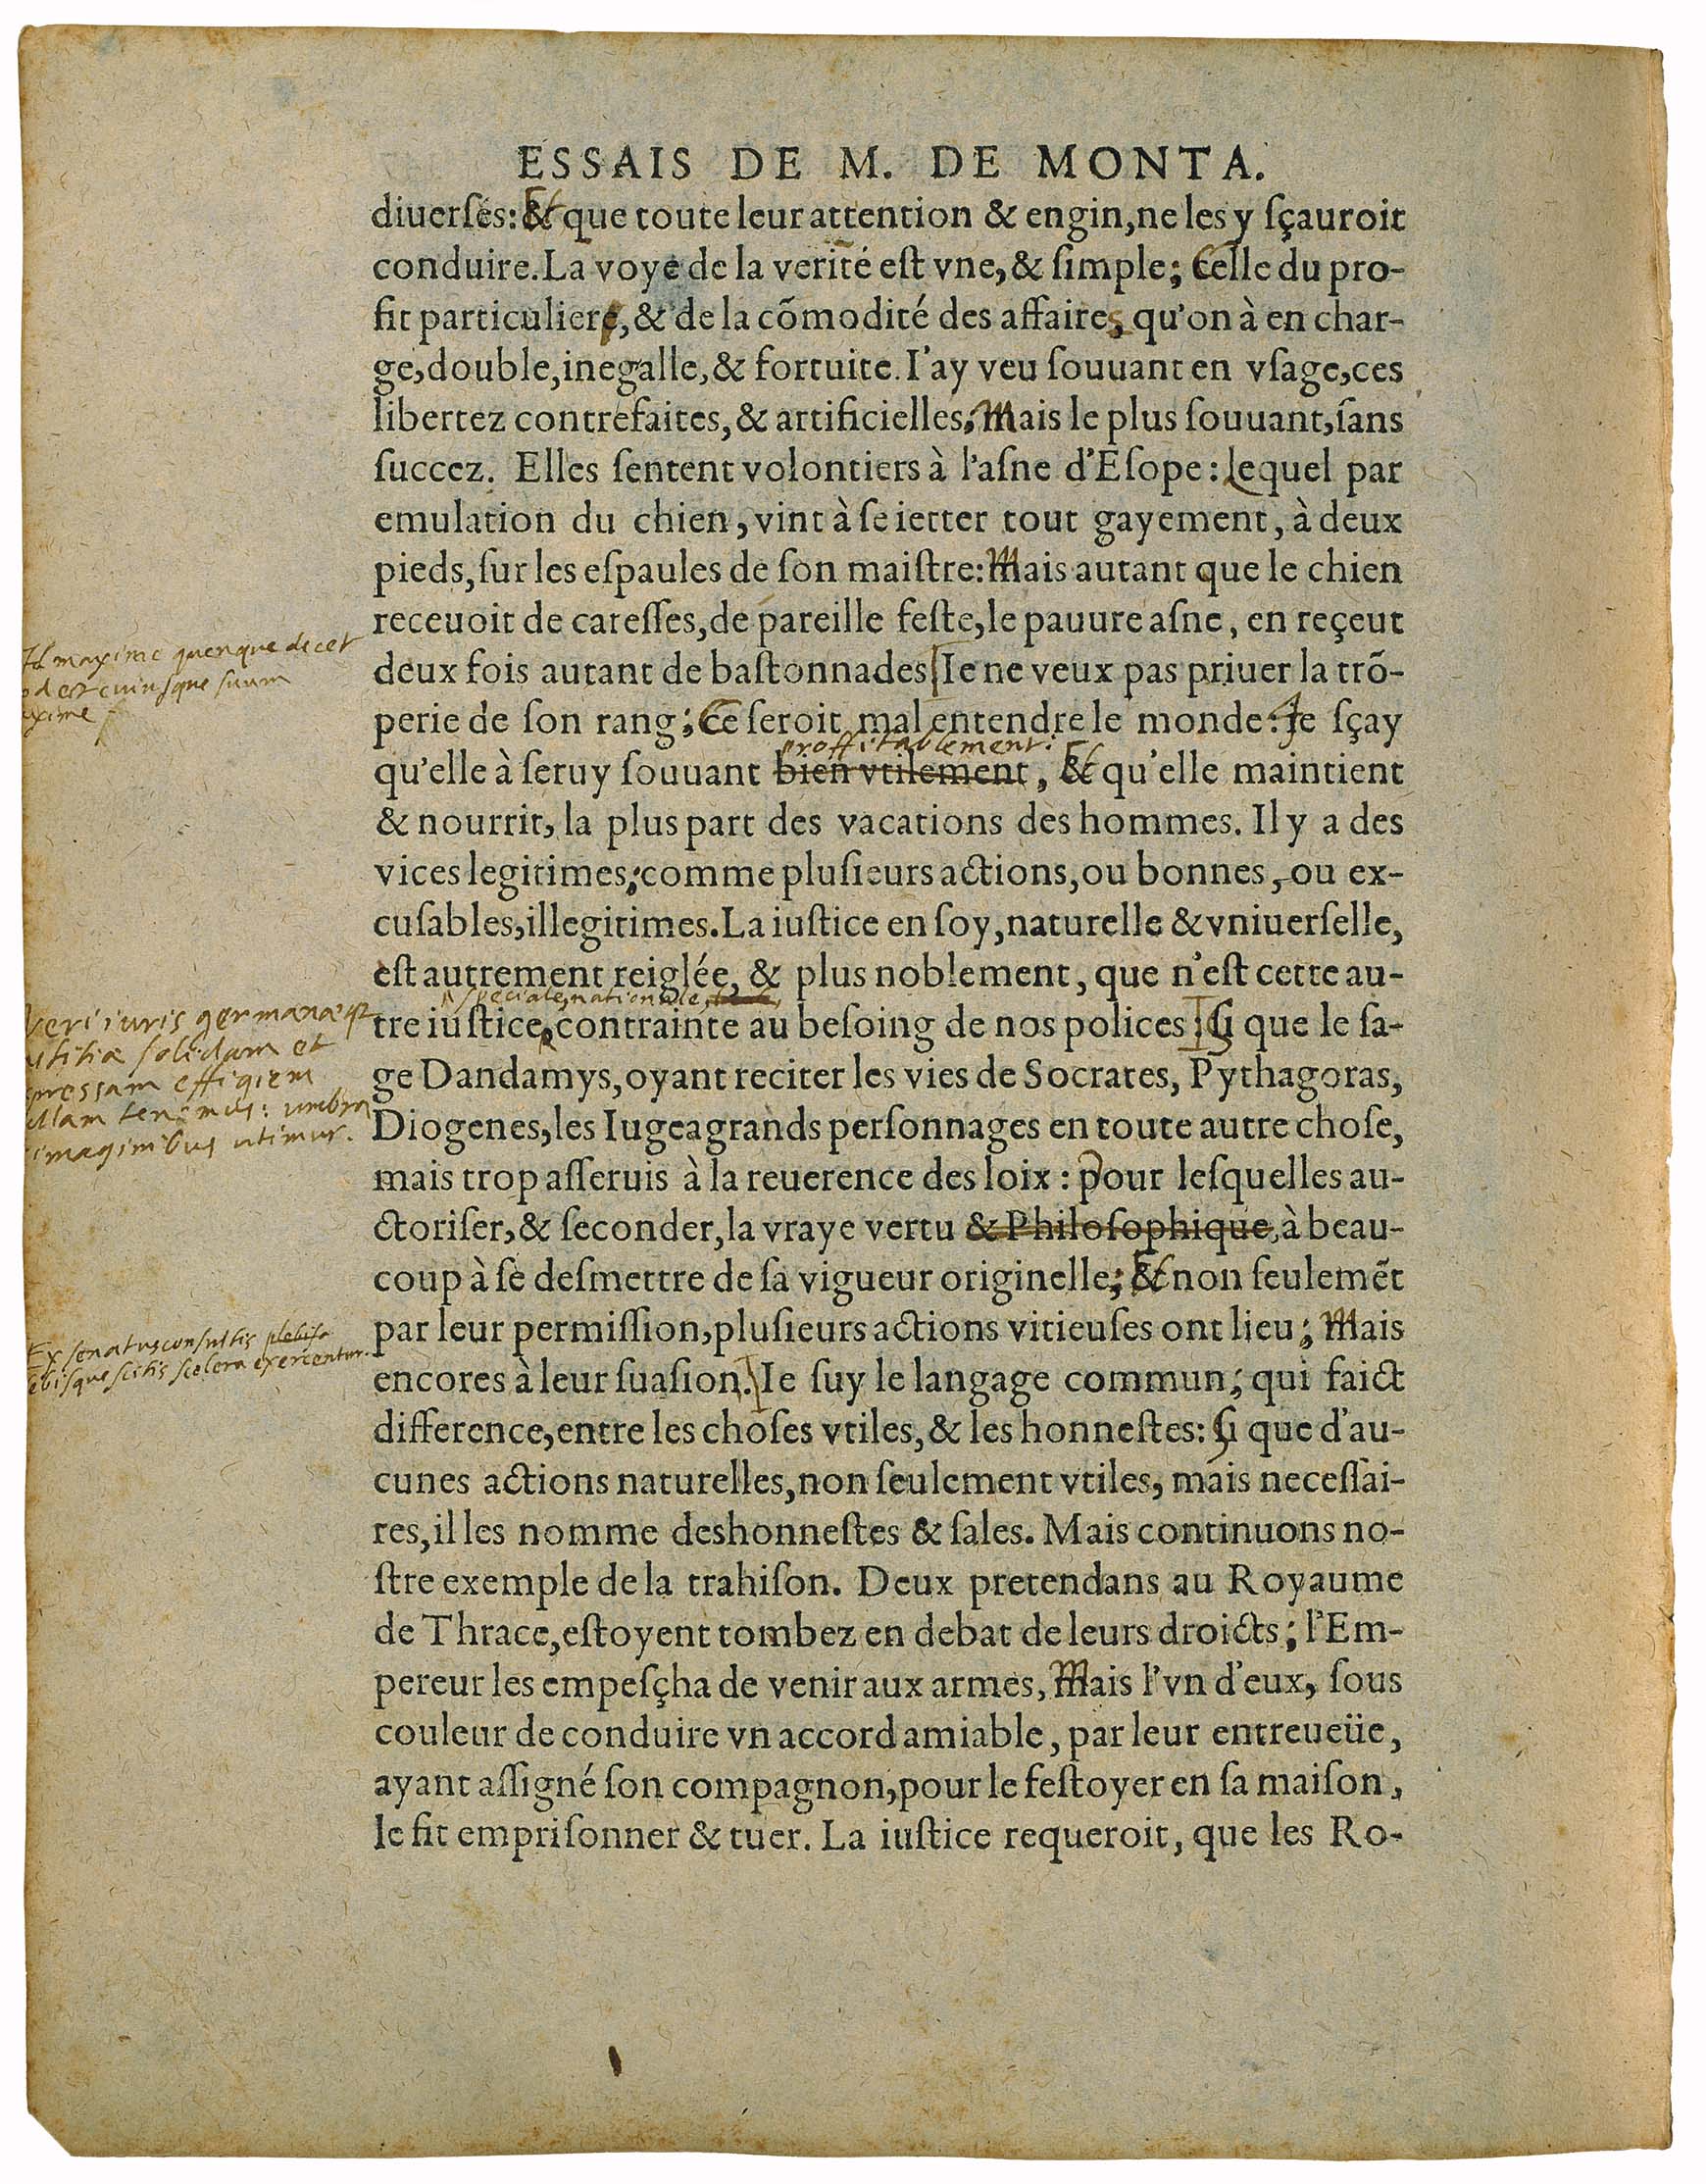 ESSAIS DE M. DE MONTA.
diuerſes: Et que toute leur attention & engin, ne les y ſçauroit
conduire. La voye de la verité eſt vne, & ſimple; Celle du pro-
fit particulier, & de la cõmodité des affaires, qu'on à en char-
ge, double, inegalle, & fortuite. I'ay veu ſouuant en vſage, ces
libertez contrefaites, & artificielles; Mais le plus ſouuant, ſans
ſuccez. Elles ſentent volontiers à l'aſne d'Eſope: Lequel par
emulation du chien, vint à ſe ietter tout gayement, à deux
pieds, ſur les eſpaules de ſon maiſtre: Mais autant que le chien
receuoit de careſſes, de pareille feſte, le pauure aſne, en reçeut
Id maxime quenque decet
od est cuiusque suum
axime
deux fois autant de baſtonnades Ie ne veux pas priuer la trõ-
perie de ſon rang; Ce ſeroit mal entendre le monde: Je ſçay
proffitablement.
qu'elle à ſeruy ſouuant bien vtilement, Et qu'elle maintient
& nourrit, la plus part des vacations des hommes. Il y a des
vices legitimes; comme pluſieurs actions, ou bonnes, ou ex-
cuſables, illegitimes. La iuſtice en ſoy, naturelle & vniuerſelle,
eſt autrement reiglée, & plus noblement, que n'eſt cette au-
speciale, nationale,
tre iuſtice, contrainte au beſoing de nos polices Si que le ſa-
Veri iuris germanæq
ustitiæ solidam et
pressam effigiem
ullam tenemus: umbra
imaginibus utimur.
ge Dandamys, oyant reciter les vies de Socrates, Pythagoras,
Diogenes, les Iugea grands perſonnages en toute autre choſe,
mais trop aſſeruis à la reuerence des loix: Pour leſquelles au-
ctoriſer, & ſeconder, la vraye vertu & Philoſophique, à beau-
coup à ſe deſmettre de ſa vigueur originelle; Et non ſeulemẽt
par leur permiſſion, pluſieurs actions vitieuſes ont lieu; Mais
Ex senatusconsultis plebisq
ebisquescitis scelera exercentur.
encores à leur ſuaſion. Ie ſuy le langage commun; qui faict
difference, entre les choſes vtiles, & les honneſtes: Si que d'au-
cunes actions naturelles, non ſeulement vtiles, mais neceſſai-
res, il les nomme deshonneſtes & ſales. Mais continuons no-
ſtre exemple de la trahiſon. Deux pretendans au Royaume
de Thrace, eſtoyent tombez en debat de leurs droicts; l'Em-
pereur les empeſçha de venir aux armes, Mais l'vn d'eux, ſous
couleur de conduire vn accord amiable, par leur entreueüe,
ayant aſſigné ſon compagnon, pour le feſtoyer en ſa maiſon,
le fit empriſonner & tuer. La iuſtice requeroit, que les Ro-